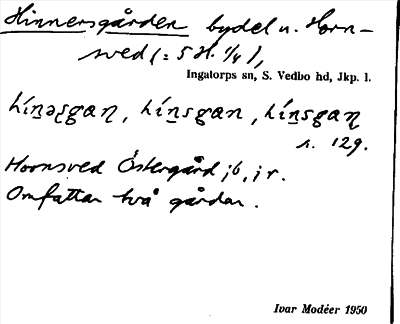 Hinnersgården bydel u. Horn-
sved (= 5 H. 1/4),
Ingatorps sn, S. Vedbo hd, Jkp. l.
s. 129.
Hornsved Östergård jb, jr.
Omfattar två gårdar.
Ivar Modéer 1950